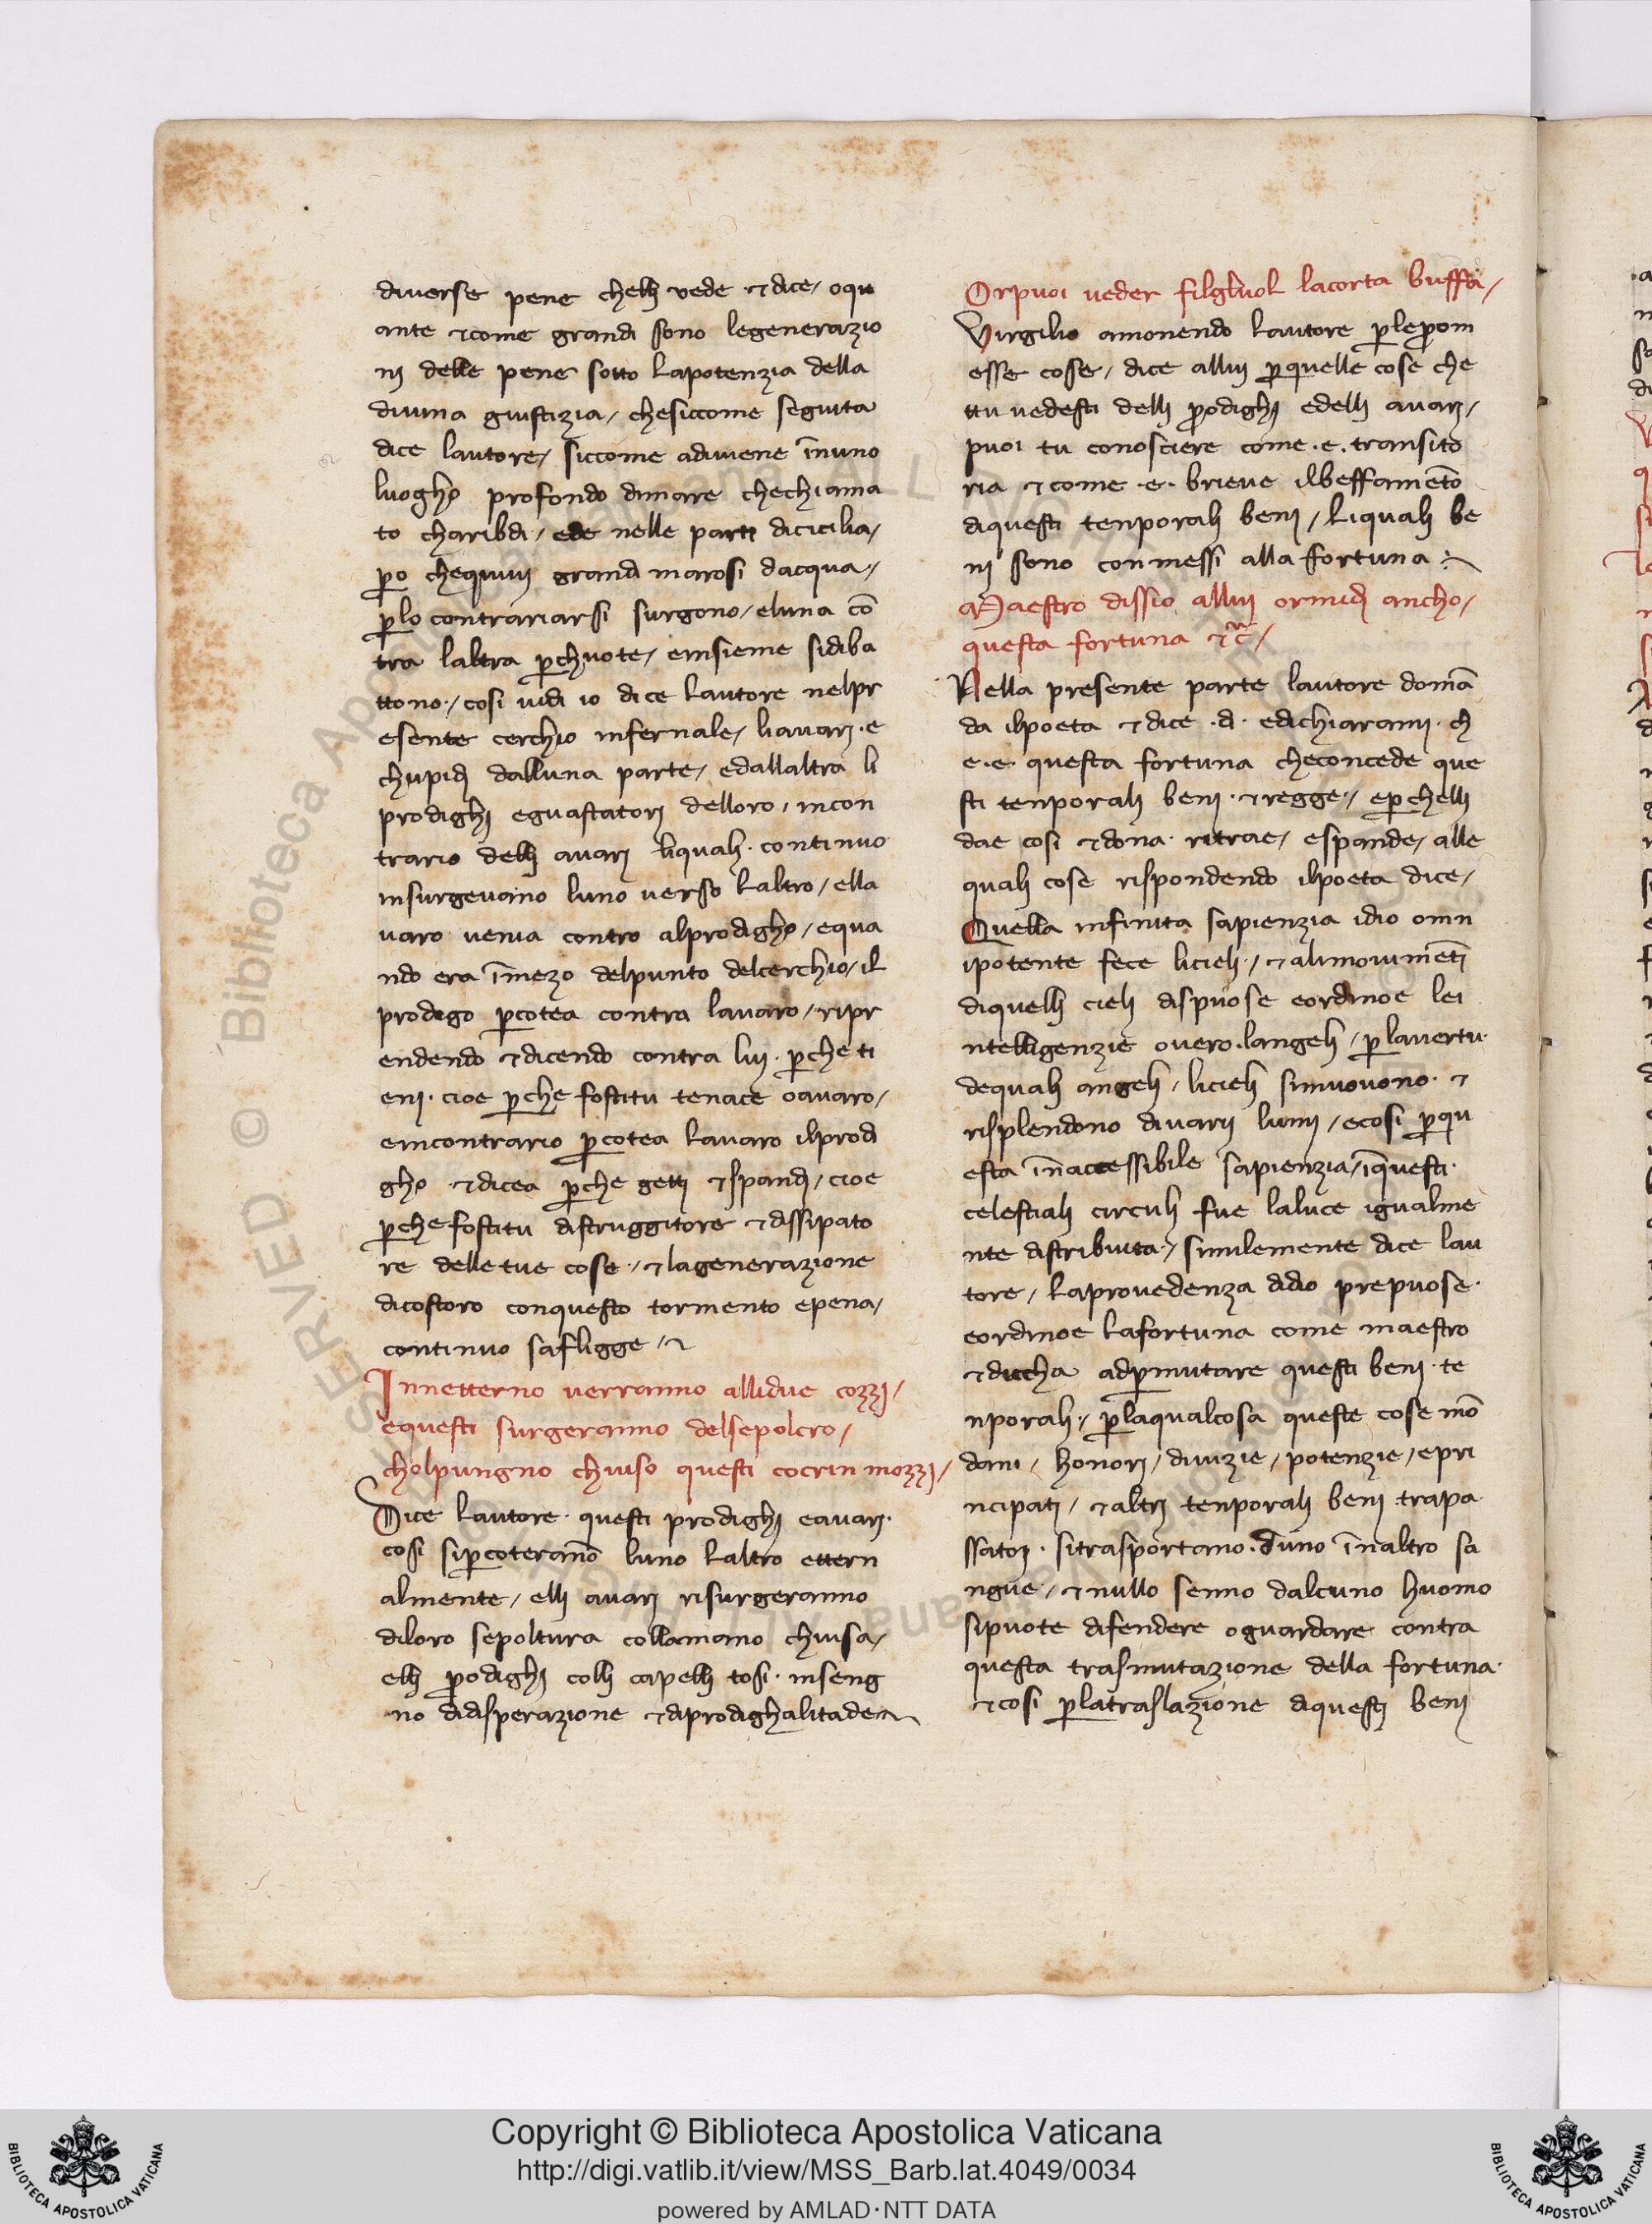 diuerse pene chelli vede ⁊ dice / oqu
ante ⁊come grandi sono legenerazio
nj delle pene sotto lapotenzia della
diuina giustizia / chesiccome seguita
dice lautore / siccome adiuiene īnuno
luogho profondo dimare chechiama
to charibdi / ede nelle parti dicicilia /
ꝑo chequiuj grandi marosi dacqua /
ꝑlo contrariarsi surgono / eluna cō
tra laltra ꝑchuote / einsieme sidiba
ttono / cosi uidi io dice lautore nelpr
esente cerchio infernale / liauarj · e
chupidj dalluna parte / edallaltra li
prodighj eguastatorj delloro / incon
trario delli auarj liqualj · continuo
insurgeuano luno verso laltro / ella
uaro venia contro alprodigho / equa
ndo era īmezo delpunto delcerchio / il
prodigo ꝑcotea contra lauaro / ripr
endendo ⁊dicendo contra luj · ꝑche ti
eni · cioe ꝑche fostitu tenace oauaro /
eincontrario ꝑcotea lauaro ilprodi
gho ⁊dicea ꝑche gettj ⁊spandj / cioe
ꝑche fostitu distruggitore ⁊dissipato
re delletue cose / ⁊lagenerazione
dicostoro conquesto tormento epena /
continuo safligge /
Innetterno verranno allidue cozzj /
equesti surgeranno delsepolcro /
cholpungno chiuso questi cocrin mozzj /
Dice lautore · questi prodighj eauarj ·
cosi siꝑcoterāno luno laltro ettern
almente / elli auarj risurgeranno
diloro sepoltura collamano chiusa /
elli ꝓdighj colli capelli tosi · inseng
no didisperazione ⁊diprodighalitade
Orpuoi ueder filgliuol lacorta buffa /
Virgilio amonendo lautore ꝑleꝓm
esse cose / dice alluj ꝑquelle cose che
ttu uedesti delli ꝓdighj edelli auarj /
puoi tu conosciere come · e · transito
ria ⁊come · e · brieue ilbeffamēto
diquesti tenporalj benj / liqualj be
nj sono conmessi alla fortuna
Maestro dissio alluj ormidj ancho /
questa fortuna ⁊c̃ /
Nella presente parte lautore domā
da ilpoeta ⁊dice · d · edichiaramj · ch
e · e · questa fortuna checoncede que
sti tenporalj benj · ⁊regge / eꝑchelli
dae cosi ⁊dona · ritrae / espande / alle
qualj cose rispondendo ilpoeta dice /
Quella infinita sapienzia idio omn
ipotente fece licielj / ⁊alimouimētj
diquelli cielj dispuose eordinoe lei
ntelligenzie ouero · langelj / ꝑ lauertu
dequalj angelj / licielj simuouono · ⁊
risplendono diuarij lumj / ecosi ꝑqu
esta īnaccessibile sapienzia / īquesti ·
celestialj circulj fue laluce igualme
nte distribuita / similemente dice lau
tore / laprouedenza didio prepuose ·
eordinoe lafortuna come maestro
⁊ducha adꝑmutare questi benj · te
nporalj / ꝑlaqualcosa queste cose mō
dani / honorj / diuizie / potenzie / epri
ncipati / ⁊altrj tenporalj benj trapa
ssatorj · sitrasportano · duno īnaltro sa
ngue / ⁊nullo senno dalcuno huomo
sipuote difendere oguardare contra
questa trasmutazione della fortuna ·
⁊cosi ꝑlatraslazione diquestj benj
Copyright © Biblioteca Apostolica Vaticana
http://digi.vatlib.it/view/MSS_Barb.lat.4049/0034
powered by AMLAD·NTT DATA
BIBLIOTECA APOSTOLICA VATICANA
BIBLIOTECA APOSTOLICA VATICANA